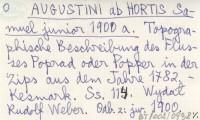 0 AUGUSTINI ab HORTIS Sa-
muel junior 1900 a. Topogra-
phische Beschreibung des Flus-
ses Poprad oder Popper in der
Zips aus dem Jahre 1782,-
Kesmark. Ss. 114. Wydał
Rudolf Weber. Odb. z: jur. 1900.